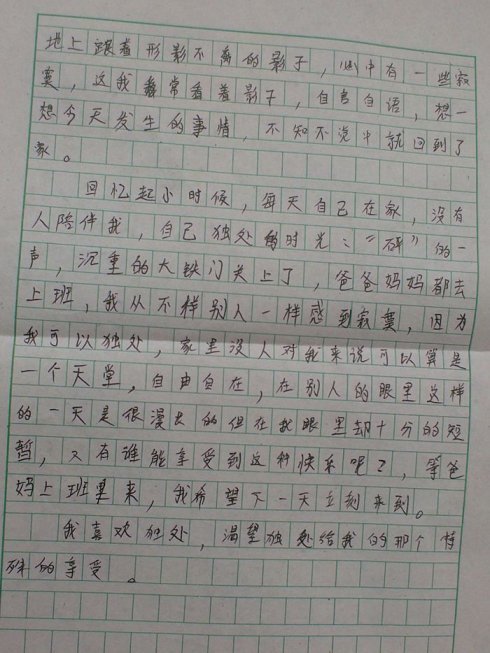 地上跟着形影不离的影子，心中有一些寂
寞，这我常常看着影子，自言自语，想一
想今天发生的事情，不知不觉中就回到了
家。
回忆起小时候，每天自己在家，没有
人陪伴我，自己独处的时光："砰"的一
声，沉重的大铁门关上了，爸爸妈妈都去
上班，我从不样别人一样感到寂寞，因为
我可以独处，家里没人对我来说可以算是
一个天堂，自由自在，在别人的眼里这样
的一天是很漫长的但在我眼里却十分的短
暂，又有谁能享受到这种快乐呢？，等爸
妈上班回来，我希望下一天立刻来到。
我喜欢独处，渴望独处给我的那个特
殊的享受。